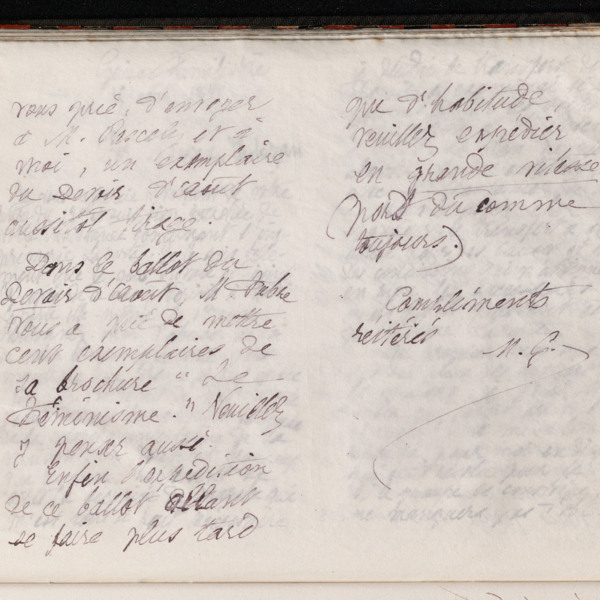 vous prie, d'envoyer
à M. Pascaly et à
moi, un exemplaire
du Devoir d'août
aussitôt tirage.
Dans le ballot du
Devoir d'août, M. Fabre
vous a prié de mettre
cent exemplaires de
sa brochure "Le
Féminisme." Veuillez
y penser aussi.
Enfin l'expédition
de ce ballot allant
se faire plus tard
que d'habitude
veuillez expédier
en grande vitesse
(port dû comme
toujours.)
Compliments
réitérés
M. G.